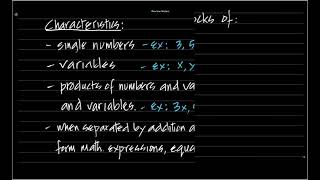 Characteristics: ocks of:
- single numbers - Ex: 3, 5
- variables - Ex: x, y
- products of numbers and va
and variables. - Ex: 3x,
- when separated by addition a
form math expressions, equa